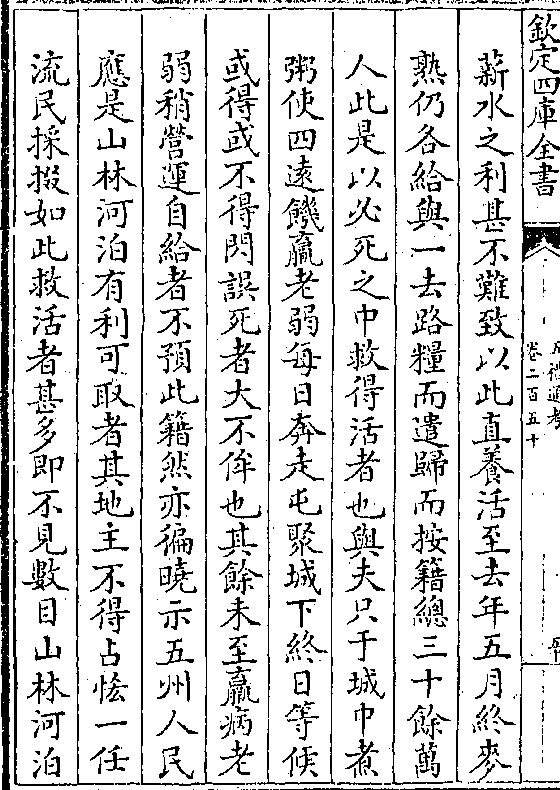 欽定四庫全書
卷二百五十
薪水之利甚不難致以此直養活至去年五月終麥
熟仍各給與一去路糧而遣歸而按籍總三十餘萬
人此是以必死之中救得活者也與夫只于城中煮
粥使四遠饑羸老弱每日奔走屯聚城下終日等候
或得或不得閃誤死者大不侔也其餘未至羸病老
弱稍營運自給者不預此籍然亦徧曉示五州人民
應是山林河泊有利可取者其地主不得占恡一任
流民採掇如此救活者甚多即不見數目山林河泊